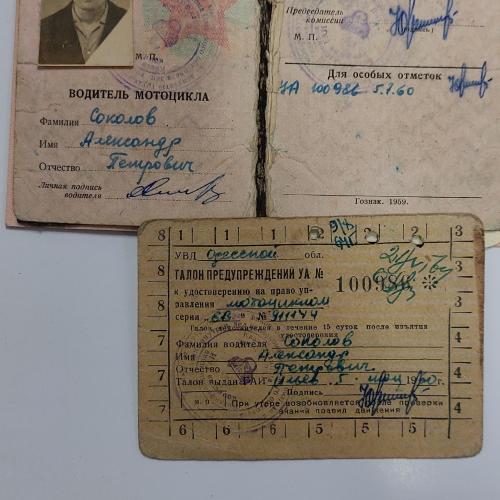 М. П.
ВОДИТЕЛЬ МОТОЦИКЛА
Фамилия Соколов
Имя Александр
Отчество Петрович
Личная подпись
водителя
Председатель
комиссии
М. П.
Для особых отметок
УА 100986 5.7.60
Гознак. 1959.
8 1 1 1 2 2 2 3
УВД Одесской обл.
ТАЛОН ПРЕДУПРЕЖДЕНИЙ УА №
100986 *
к удостоверению на право уп-
равления мотоциклом
серия "ЕВ" № 911144
Талон действителен в течение 15 суток после изъятия
удостоверения
Фамилия водителя Соколов
Имя Александр
Отчество Петрович
Талон выдан ГАИ 5 1960 г.
Подпись
М. П.
При утере возобновляется после проверки
знаний правил движения
8 8 7 7 7
3 3 4 4 4
6 6 6 5 5 5